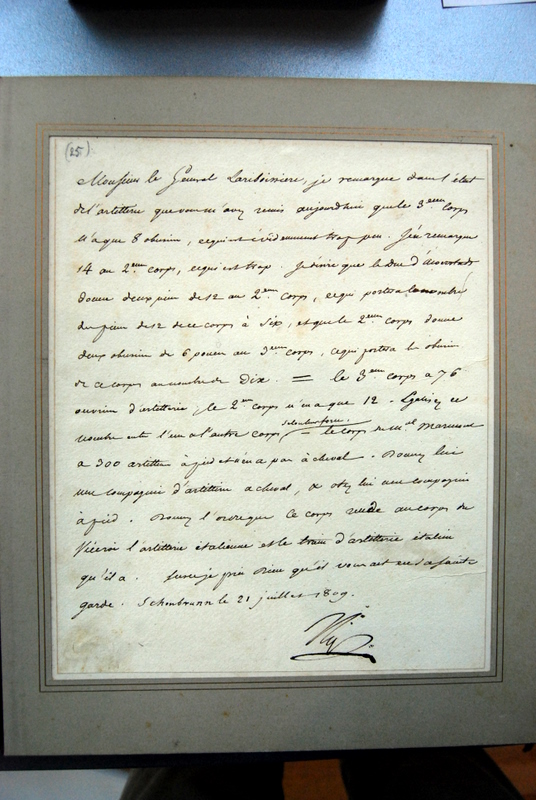 (25)
Monsieur le Général Lariboissiere, je remarque dans l'état
de l'artillerie que vous m'avez remis aujourdhui que le 3eme corps
n'a que 8 obusiers, ce qui est évidemment trop peu. J'en remarque
14 au 2eme corps, ce qui est trop. Je désire que le Duc d'
donne deux pieces de 12 au 2eme corps, ce qui portera le nombre
des pieces de 12 de ce corps à Six, et que le 2eme corps donne
deux obusiers de 6 pouces au 3eme corps, ce qui portera les obusiers
de ce corps au nombre de Dix. = le 3eme corps a 76
ouvriers d'artillerie, le 2eme corps n'en a que 12 - Egalisez ce
nombre entre l'un et l'autre corps - le Corps du Mal Marmont
a 300 artilleurs à pied et n'en a pas à cheval. Donnez lui
une compagnie d'artillerie a cheval, & otez lui une compagnie
à pied. Donnez l'ordre que ce corps rende au corps du
Viceroi l'artillerie italienne et le train d'artillerie italien
qu'il a. Sur ce, je prie Dieu qu'il vous ait en sa sainte
garde. Schonbrunn le 21 juillet 1809.
Np